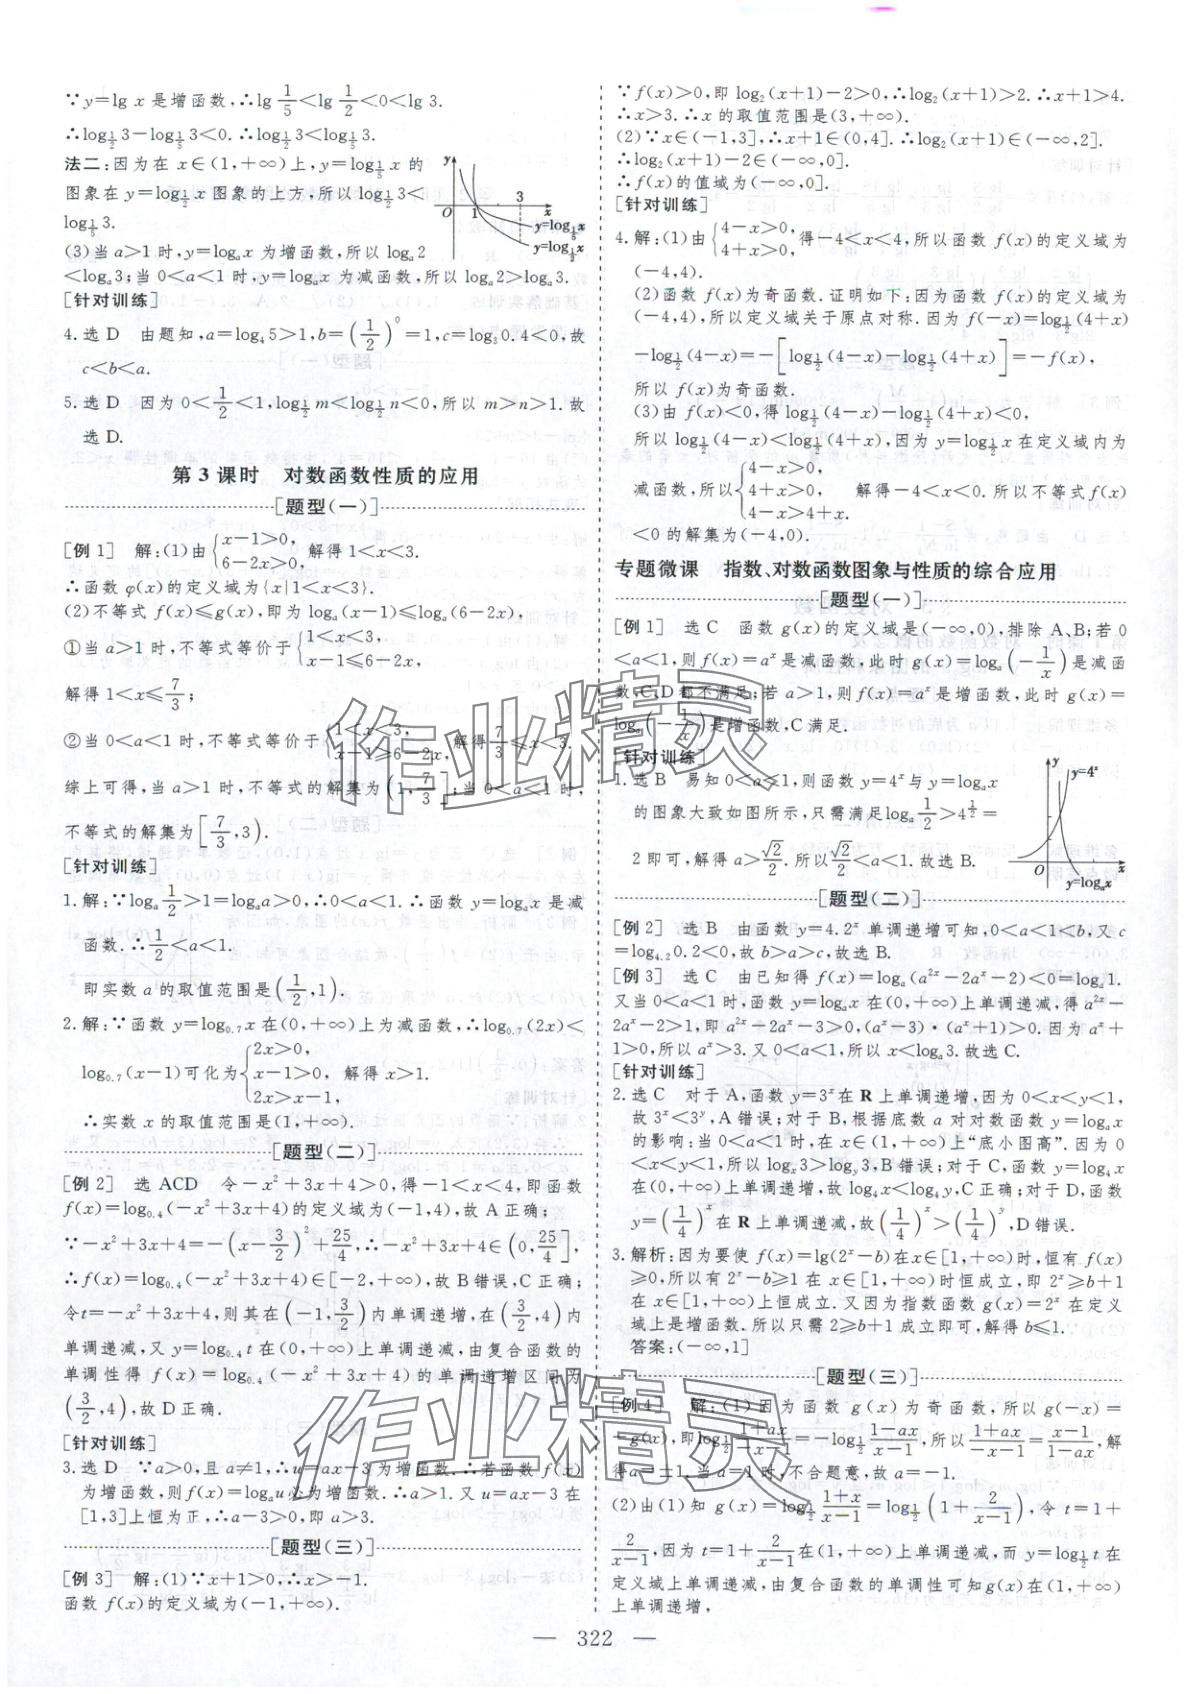 ∵y=lg x 是增函数,∴lg 1/5<lg 1/2<0<lg 3.
∴log_{1/2}3-log_{1/5}3<0. ∴log_{1/2}3<log_{1/5}3.
法二:因为在 x∈(1,+∞)上,y=log_{1/5} x 的
图象在 y=log_{1/2}x 图象的上方,所以 log_{1/2}3<
log_{1/5}3.
y
O 1 3 x
y=log_{1/5}x
y=log_{1/2}x
(3)当 a>1 时,y=log_a x 为增函数,所以 log_a 2
<log_a 3;当 0<a<1 时,y=log_a x 为减函数,所以 log_a 2>log_a 3.
[针对训练]
4.选 D 由题知,a=log_4 5>1,b=(1/2)^0=1,c=log_3 0.4<0,故
c<b<a.
5.选 D 因为 0<1/2<1,log_{1/2}m<log_{1/2}n<0,所以 m>n>1.故
选 D.
第 3 课时 对数函数性质的应用
[题型(一)]
[例 1] 解:(1)由{x-1>0, 6-2x>0, 解得 1<x<3.
∴函数 φ(x)的定义域为{x|1<x<3}.
(2)不等式 f(x)≤g(x),即为 log_a(x-1)≤log_a(6-2x),
①当 a>1 时,不等式等价于{1<x<3, x-1≤6-2x,
解得 1<x≤7/3;
②当 0<a<1 时,不等式等价于{1<x<3, x-1≥6-2x, 解得7/3≤x<3.
综上可得,当 a>1 时,不等式的解集为(1,7/3];当 0<a<1 时,
不等式的解集为[7/3,3).
[针对训练]
1.解:∵log_a 1/2>1=log_a a>0,∴0<a<1,此时 y=log_a x 是减
函数.∴1/2<a<1.
即实数 a 的取值范围是(1/2,1).
2.解:∵函数 y=log_{0.7}x 在(0,+∞)上为减函数,∴log_{0.7}(2x)<
log_{0.7}(x-1)可化为{2x>0, x-1>0, 2x>x-1. 解得 x>1.
∴实数 x 的取值范围是(1,+∞).
[题型(二)]
[例 2] 选 ACD 令-x²+3x+4>0,得-1<x<4,即函数
f(x)=log_{0.4}(-x²+3x+4)的定义域为(-1,4),故 A 正确;
∵-x²+3x+4=-(x-3/2)²+25/4,∴-x²+3x+4∈(0,25/4],
∴f(x)=log_{0.4}(-x²+3x+4)∈[-2,+∞),故 B 错误,C 正确;
令t=-x²+3x+4,则其在(-1,3/2)内单调递增,在(3/2,4)内
单调递减,又 y=log_{0.4}t 在(0,+∞)上单调递减,由复合函数的
单调性得 f(x)=log_{0.4}(-x²+3x+4)的单调递增区间为
(3/2,4),故 D 正确.
[针对训练]
3.选 D ∵a>0,且 a≠1,∴u=ax-3 为增函数.∴若函数 f(x)
为增函数,则 f(x)=log_a u 必为增函数.∴a>1.又 u=ax-3 在
[1,3]上恒为正,∴a-3>0,即 a>3.
[题型(三)]
[例 3] 解:(1)∵x+1>0,∴x>-1.
函数 f(x)的定义域为(-1,+∞).
∵f(x)>0,即 log_2(x+1)-2>0,∴log_2(x+1)>2.∴x+1>4.
∴x>3.∴x 的取值范围是(3,+∞).
(2)∵x∈(-1,3],∴x+1∈(0,4].∴log_2(x+1)∈(-∞,2].
∴log_2(x+1)-2∈(-∞,0].
∴f(x)的值域为(-∞,0].
[针对训练]
4.解:(1)由{4-x>0, 4+x>0, 得-4<x<4,所以函数 f(x)的定义域为
(-4,4).
(2)函数 f(x)为奇函数.证明如下:因为函数 f(x)的定义域为
(-4,4),所以定义域关于原点对称.因为 f(-x)=log_{1/2}(4+x)
-log_{1/2}(4-x)=-[log_{1/2}(4-x)-log_{1/2}(4+x)]=-f(x),
所以 f(x)为奇函数.
(3)由 f(x)<0,得 log_{1/2}(4-x)-log_{1/2}(4+x)<0,
所以 log_{1/2}(4-x)<log_{1/2}(4+x),因为 y=log_{1/2}x 在定义域内为
减函数,所以{4-x>0, 4+x>0, 4-x>4+x. 解得-4<x<0.所以不等式f(x)
<0 的解集为(-4,0).
专题微课 指数、对数函数图象与性质的综合应用
[题型(一)]
[例 1] 选 C 函数 g(x)的定义域是(-∞,0),排除 A、B;若 0
<a<1,则 f(x)=a^x 是减函数,此时 g(x)=log_a(-1/x)是减函
数,C、D 都不满足;若 a>1,则 f(x)=a^x 是增函数,此时 g(x)=
log_a(-1/x)是增函数,C 满足.
[针对训练]
1.选 B 易知 0<a<1,则函数 y=4^x 与 y=log_a x
的图象大致如图所示,只需满足log_a 1/2>4^{1/2}=
2 即可,解得 a>√2/2.所以√2/2<a<1.故选 B.
y
y=4^x
x
y=log_a x
[题型(二)]
[例 2] 选 B 由函数 y=4.2^x 单调递增可知,0<a<1<b,又 c
=log_{4.2}0.2<0,故 b>a>c,故选 B.
[例 3] 选 C 由已知得 f(x)=log_a(a^{2x}-2a^x-2)<0=log_a 1.
又当 0<a<1 时,函数 y=log_a x 在(0,+∞)上单调递减,得 a^{2x}-
2a^x-2>1,即 a^{2x}-2a^x-3>0,(a^x-3)·(a^x+1)>0.因为 a^x+
1>0,所以 a^x>3.又 0<a<1,所以 x<log_a 3.故选 C.
[针对训练]
2.选 C 对于 A,函数 y=3^x 在 R 上单调递增,因为 0<x<y<1,
故 3^x<3^y,A 错误;对于 B,根据底数 a 对对数函数 y=log_a x
的影响:当 0<a<1 时,在 x∈(1,+∞)上“底小图高”.因为 0
<x<y<1,所以 log_x 3>log_y 3,B 错误;对于 C,函数 y=log_4 x
在(0,+∞)上单调递增,故 log_4 x<log_4 y,C 正确;对于 D,函数
y=(1/4)^x 在 R 上单调递减,故(1/4)^x>(1/4)^y,D 错误.
3.解析:因为要使 f(x)=lg(2^x-b)在x∈[1,+∞)时,恒有 f(x)
≥0,所以有 2^x-b≥1 在 x∈[1,+∞)时恒成立,即 2^x≥b+1
在 x∈[1,+∞)上恒成立.又因为指数函数 g(x)=2^x 在定义
域上是增函数.所以只需 2≥b+1 成立即可,解得 b≤1.
答案:(-∞,1]
[题型(三)]
[例 4] 解:(1)因为函数 g(x)为奇函数,所以 g(-x)=
-g(x),即log_{1/2} (1+ax)/(-x-1)=-log_{1/2} (1-ax)/(x-1),所以(1+ax)/(-x-1)=(x-1)/(1-ax),解
得a=±1.当 a=1 时,不合题意,故 a=-1.
(2)由(1)知 g(x)=log_{1/2} (1+x)/(x-1)=log_{1/2}(1+2/(x-1)),令 t=1+
2/(x-1),因为 t=1+2/(x-1)在(1,+∞)上单调递减,而 y=log_{1/2}t 在
定义域上单调递减,由复合函数的单调性可知g(x)在(1,+∞)
上单调递增,
— 322 —
作业精灵
作业精灵